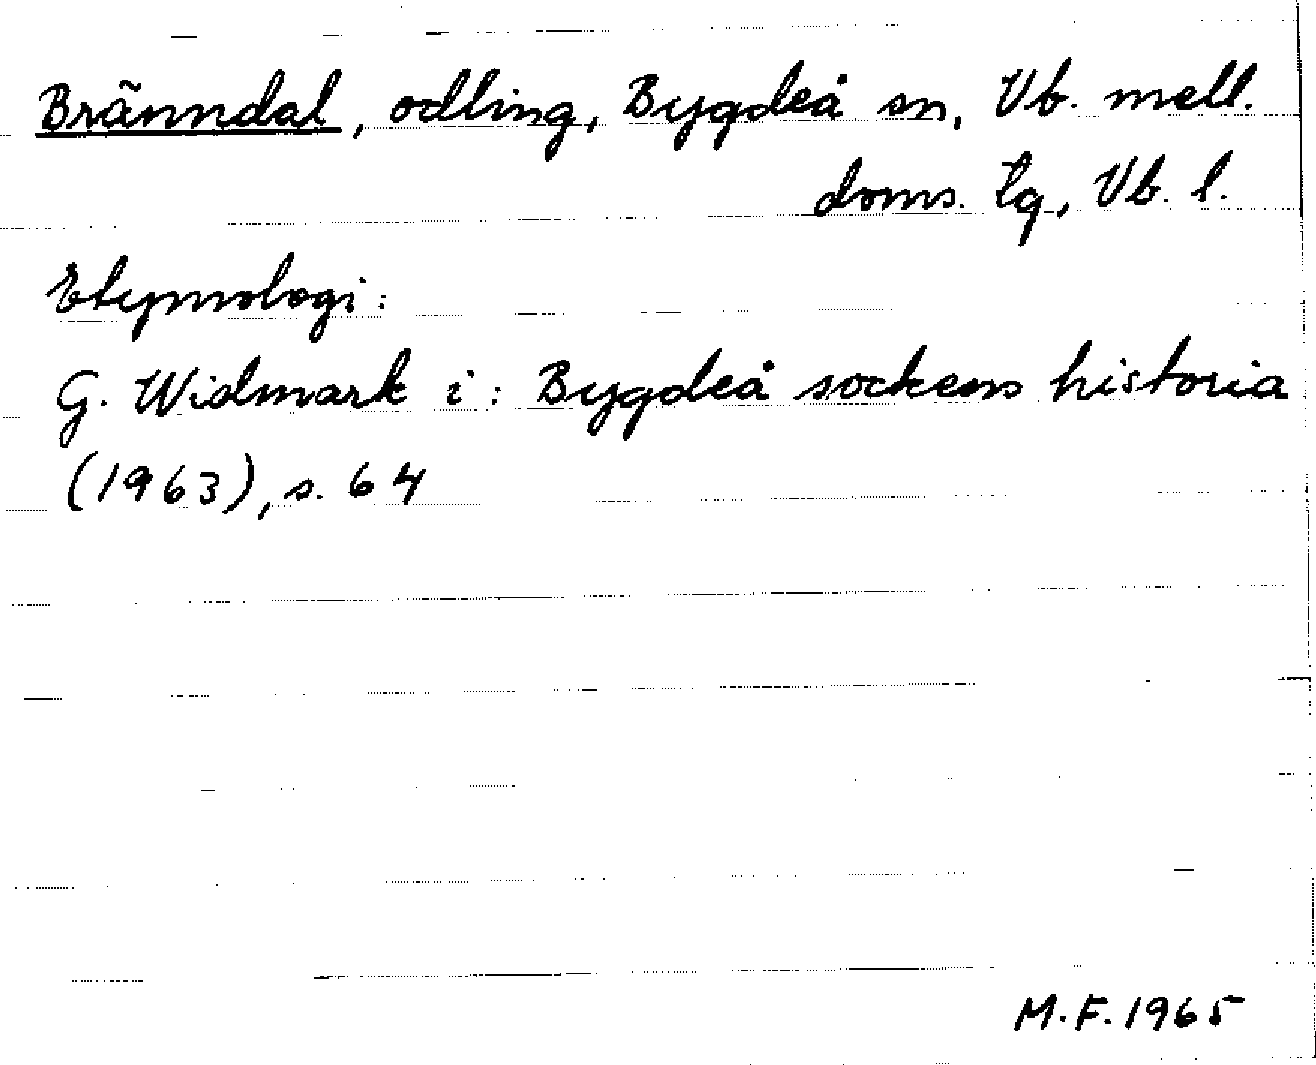 Bränndal, odling, Bygdeå sn, Vb. mell.
doms. tg, Vb. l.
Etymologi:
G. Widmark i: Bygdeå sockens historia
(1963), s. 64
M.F. 1965